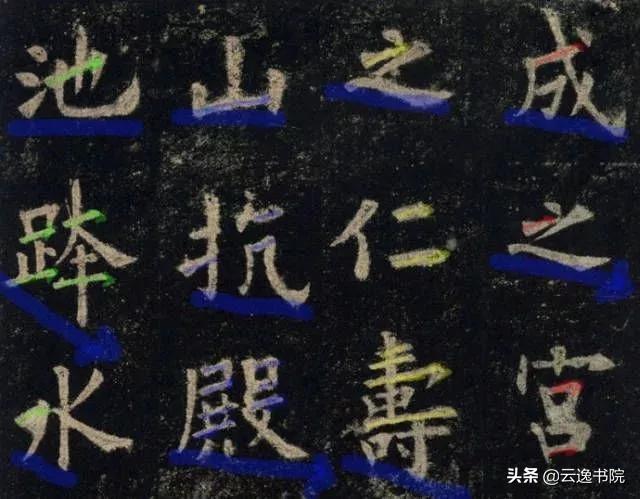 成之宮
之仁壽
山抗殿
池跨水
头条 @云逸书院